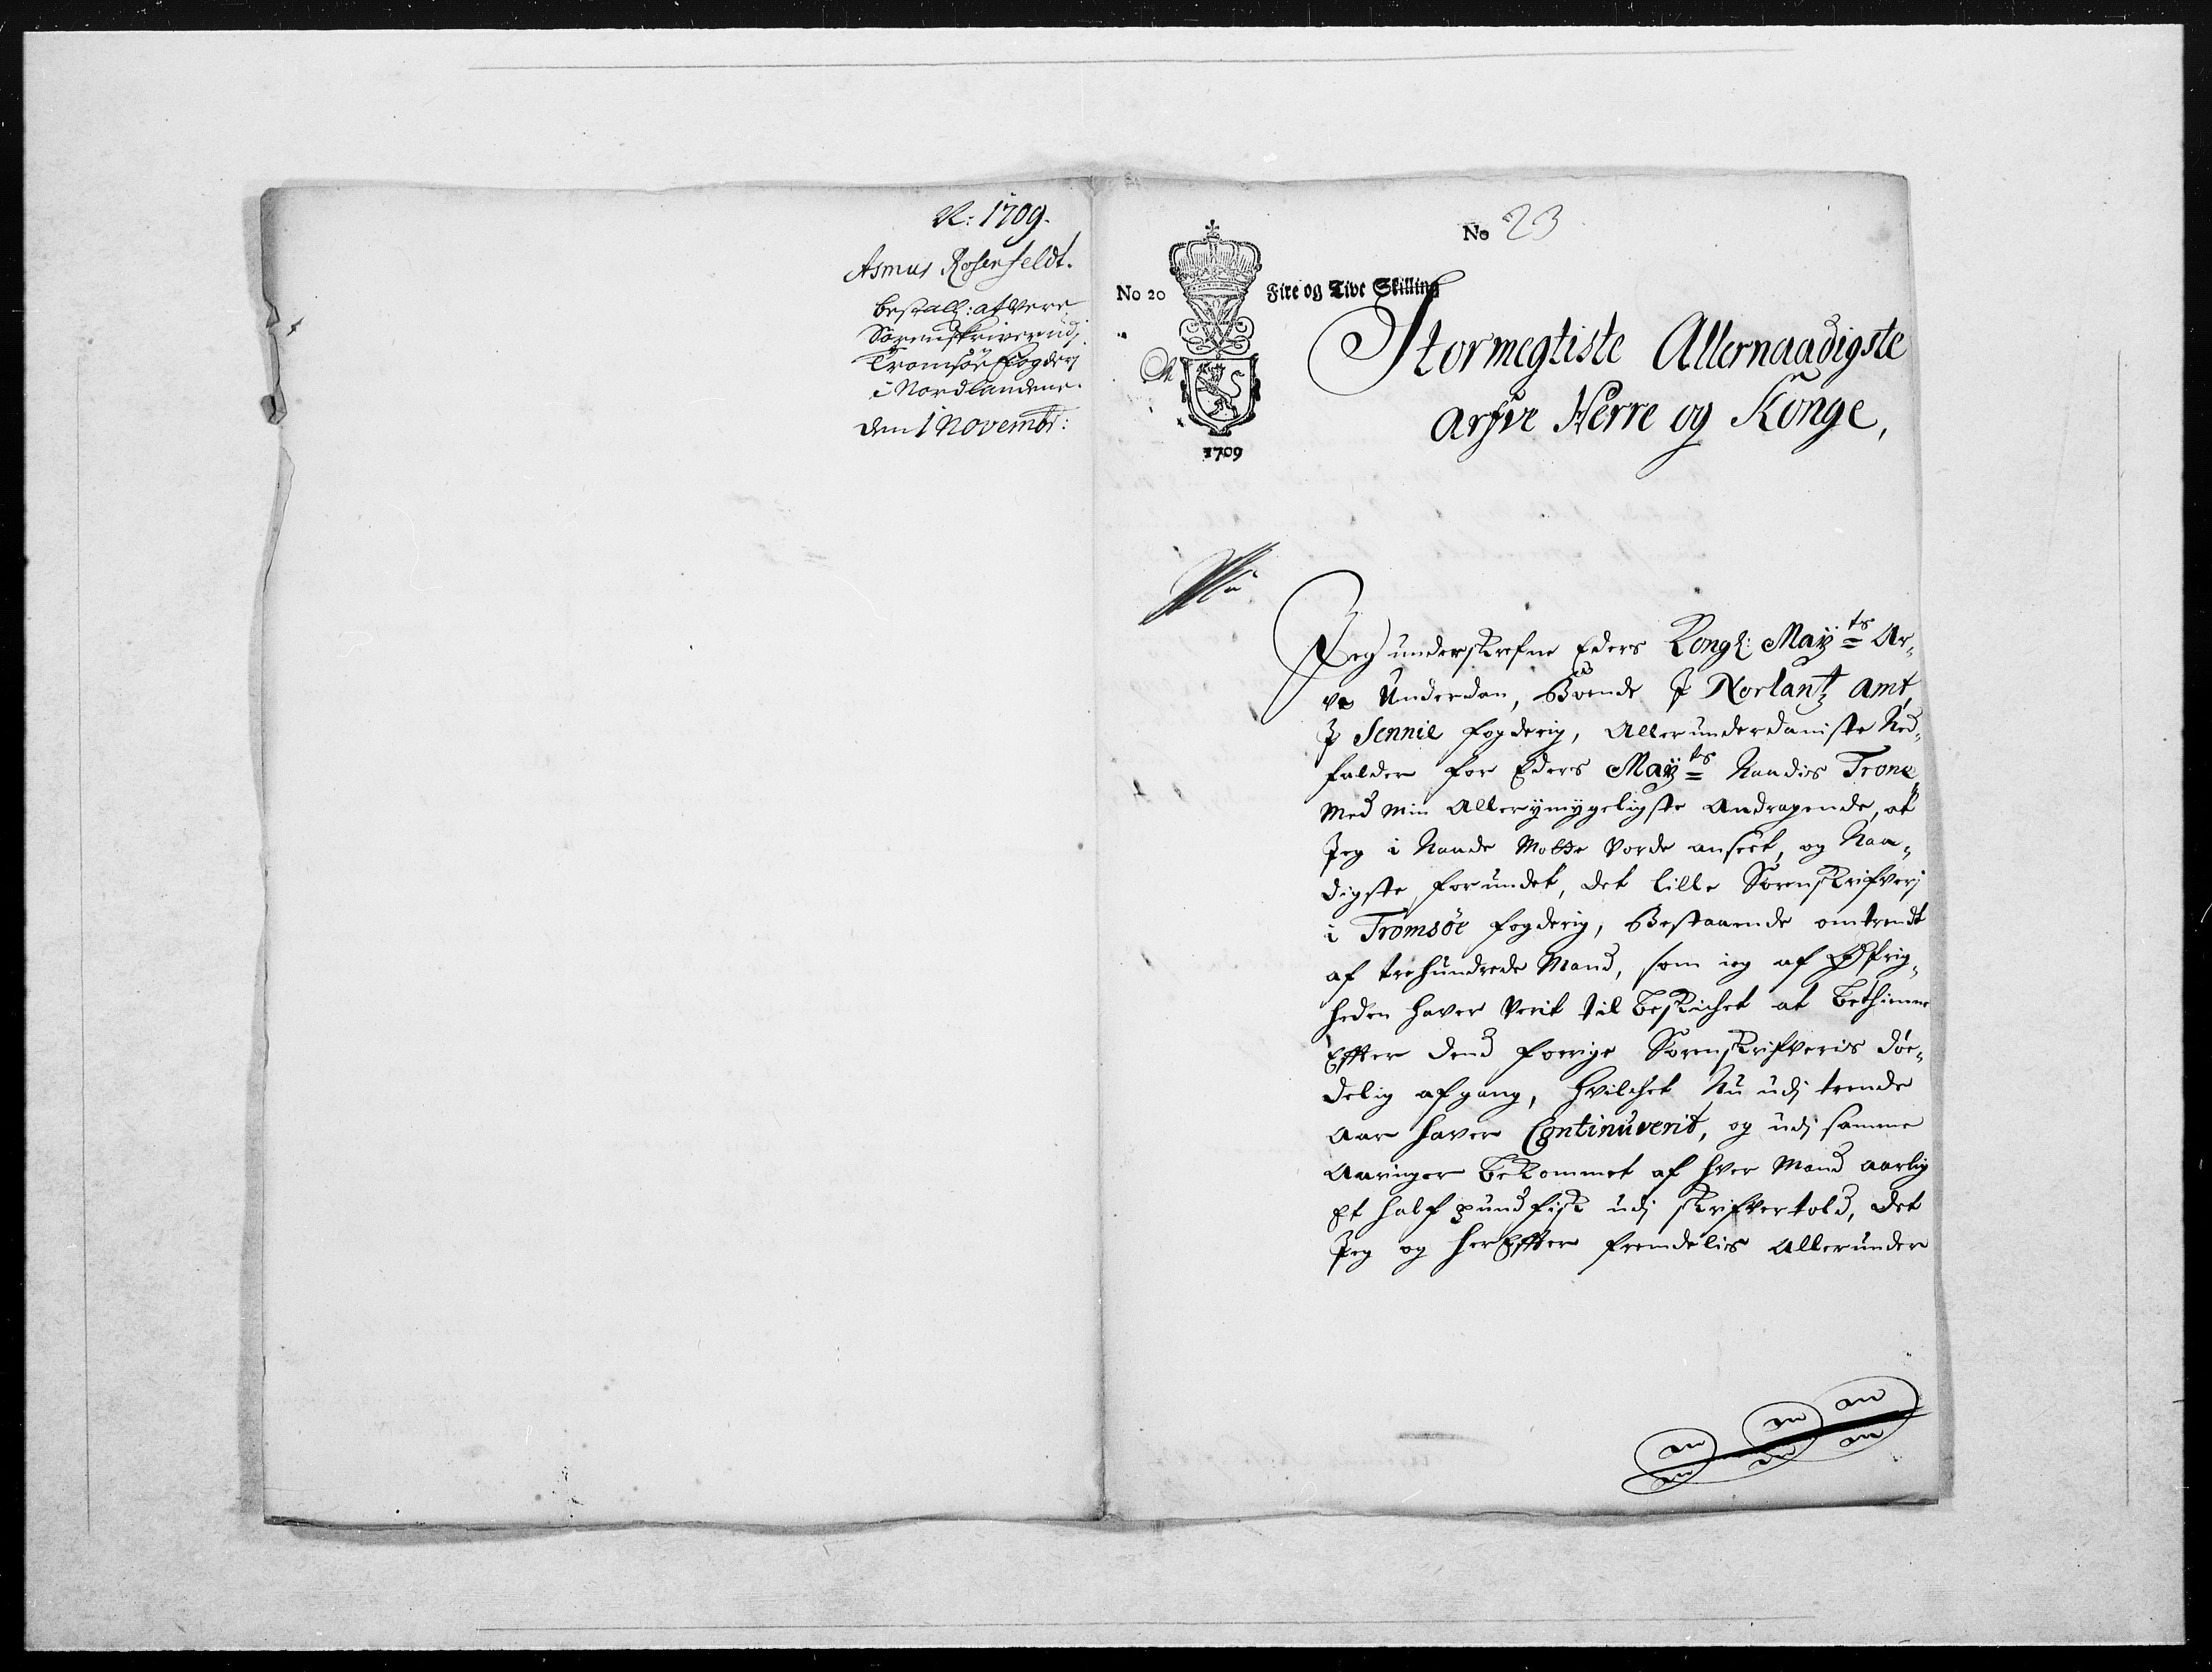 N: 1709.
Asmus Rosenfeldt.
bestall: at vere
Sorenskriver udj
Tromsöe fogderj
i Nordlandene.
den 1 Novembr:
No 23
No 20 Fire og Tive Skilling
1709
Stormegtiste Allernaadigste
arfve Herre og Konge,
Jeg underskrefne Eders Kongl: Mayts Ar„
ve Underdan, Boende J Norlantz amt,
J Sennie fogderig, Allerunderdaniste Ned„
falder for Eders Mayts Naadis Trone,
med min Allerÿmygeligste Andragende, at
Jeg i Naade Motte vorde anseet, og Naa„
digste forundet, det lille Sorenskrifverj
i Tromsöe fogderig, Bestaaende omtrendt
af trehundrede Mand, som ieg af Øfrig„
heden haver verit til beskichet at bethienne
Effter dend forrige Sorenskrifveris döe„
delig afgang, hvilchet Nu udj trende
Aar haver Continuverit, og udj samme
Aaringer bekommet af hver Mand aarlig
Et half pund fisk udj skrifvertold, det
Jeg og herEffter fremdelis Allerunder
an an an
an an an